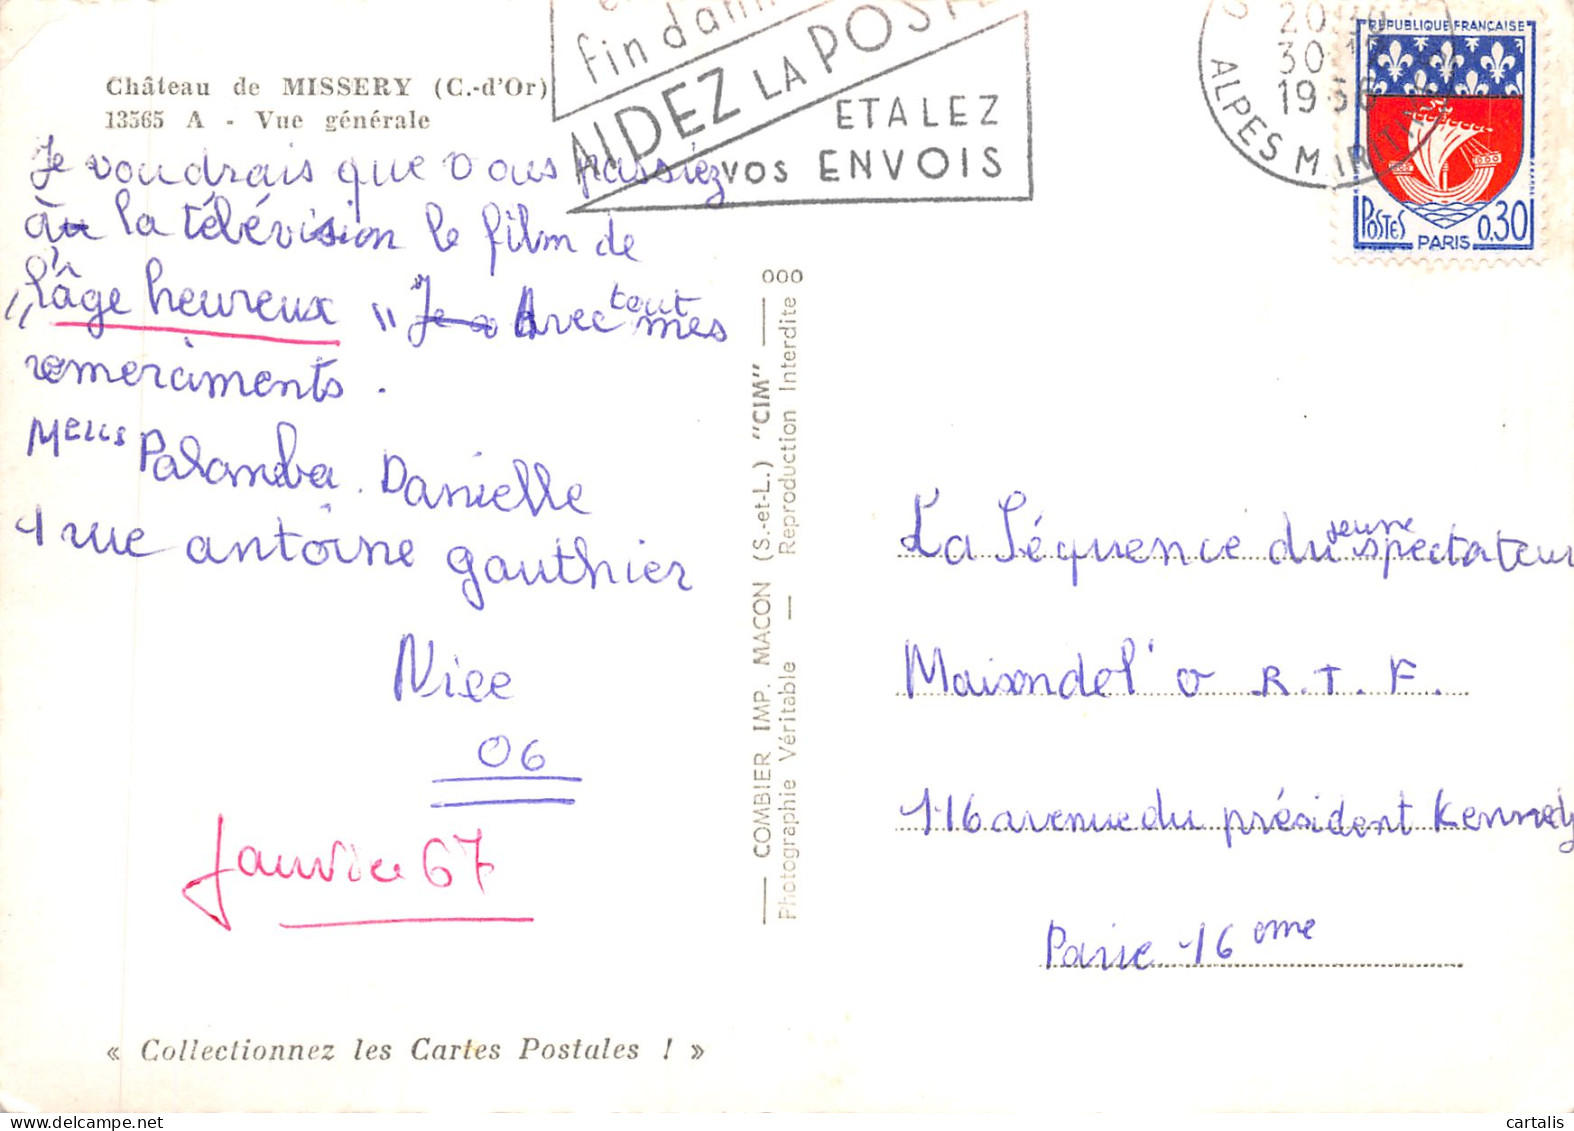 Château de MISSERY (C.-d'Or)
13565 A - Vue générale
Je voudrais que vous passiez
à la télévision le film de
"l'âge heureux" Je Avec tout mes
remerciments.
Melles Palomba. Danielle
1 rue antoine gauthier
Nice
06
Janvier 67
« Collectionnez les Cartes Postales ! »
fin dann
AIDEZ LA POSTE
ETALEZ
VOS ENVOIS
20
30
1966
ALPES MARITIMES
REPUBLIQUE FRANÇAISE
POSTES PARIS 0,30
COMBIER IMP. MACON (S.-et-L.) "CIM" 000
Photographie Véritable — Reproduction Interdite
La Séquence du jeune spectateur
Maison de l'o R.T.F.
116 avenue du président Kennedy
Paris 16 eme
www.cartalis.com